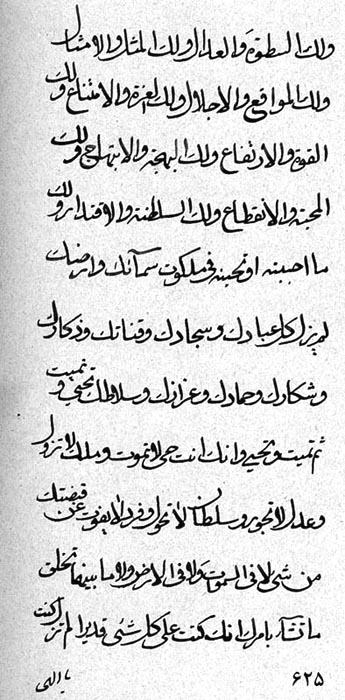 ولك السطوة والعدال ولك المثل والامثال
ولك المواقع والاجلال ولك العزة والامتناع ولك
القوة والارتفاع ولك البهجة والابتهاج ولك
المحبة والانقطاع ولك السلطنة والاقتدار ولك
ما احببته او تحبنه فى ملكوت سمآئك وارضك
لم يزل كل عبادك وسجادك وقناتك وذكارك
وشكارك وحمادك وعزازك وسلاطك تحيي وتميت
ثم تميت وتحيي وانك انت حي لا تموت وملك لا تزول
وعدل لا تجور وسلطان لا تحول وفرد لا يفوت عن قبضتك
من شئ لا فى السموات ولا فى الارض ولا ما بينهما تخلق
ما تشآء بامرك انك كنت على كل شئ قديرا لم تزل كنت
۶۲۵